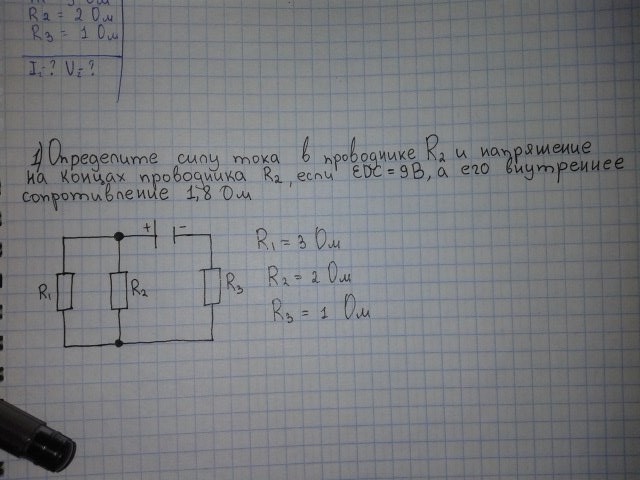 R2 = 2 Ом
R3 = 1 Ом
I2=? U2=?
1) Определите силу тока в проводнике R2 и напряшение
на концах проводника R2, если EDC = 9В, а его внутреннее
сопротивление 1,8 Ом
+ -
R1 R2 R3
R1 = 3 Ом
R2 = 2 Ом
R3 = 1 Ом